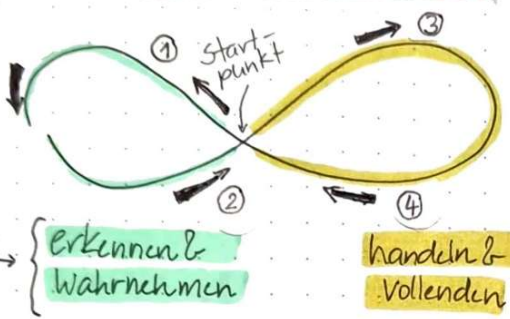 ①
③
Start-
punkt
②
④
erkennen &
wahrnehmen
handeln &
vollenden